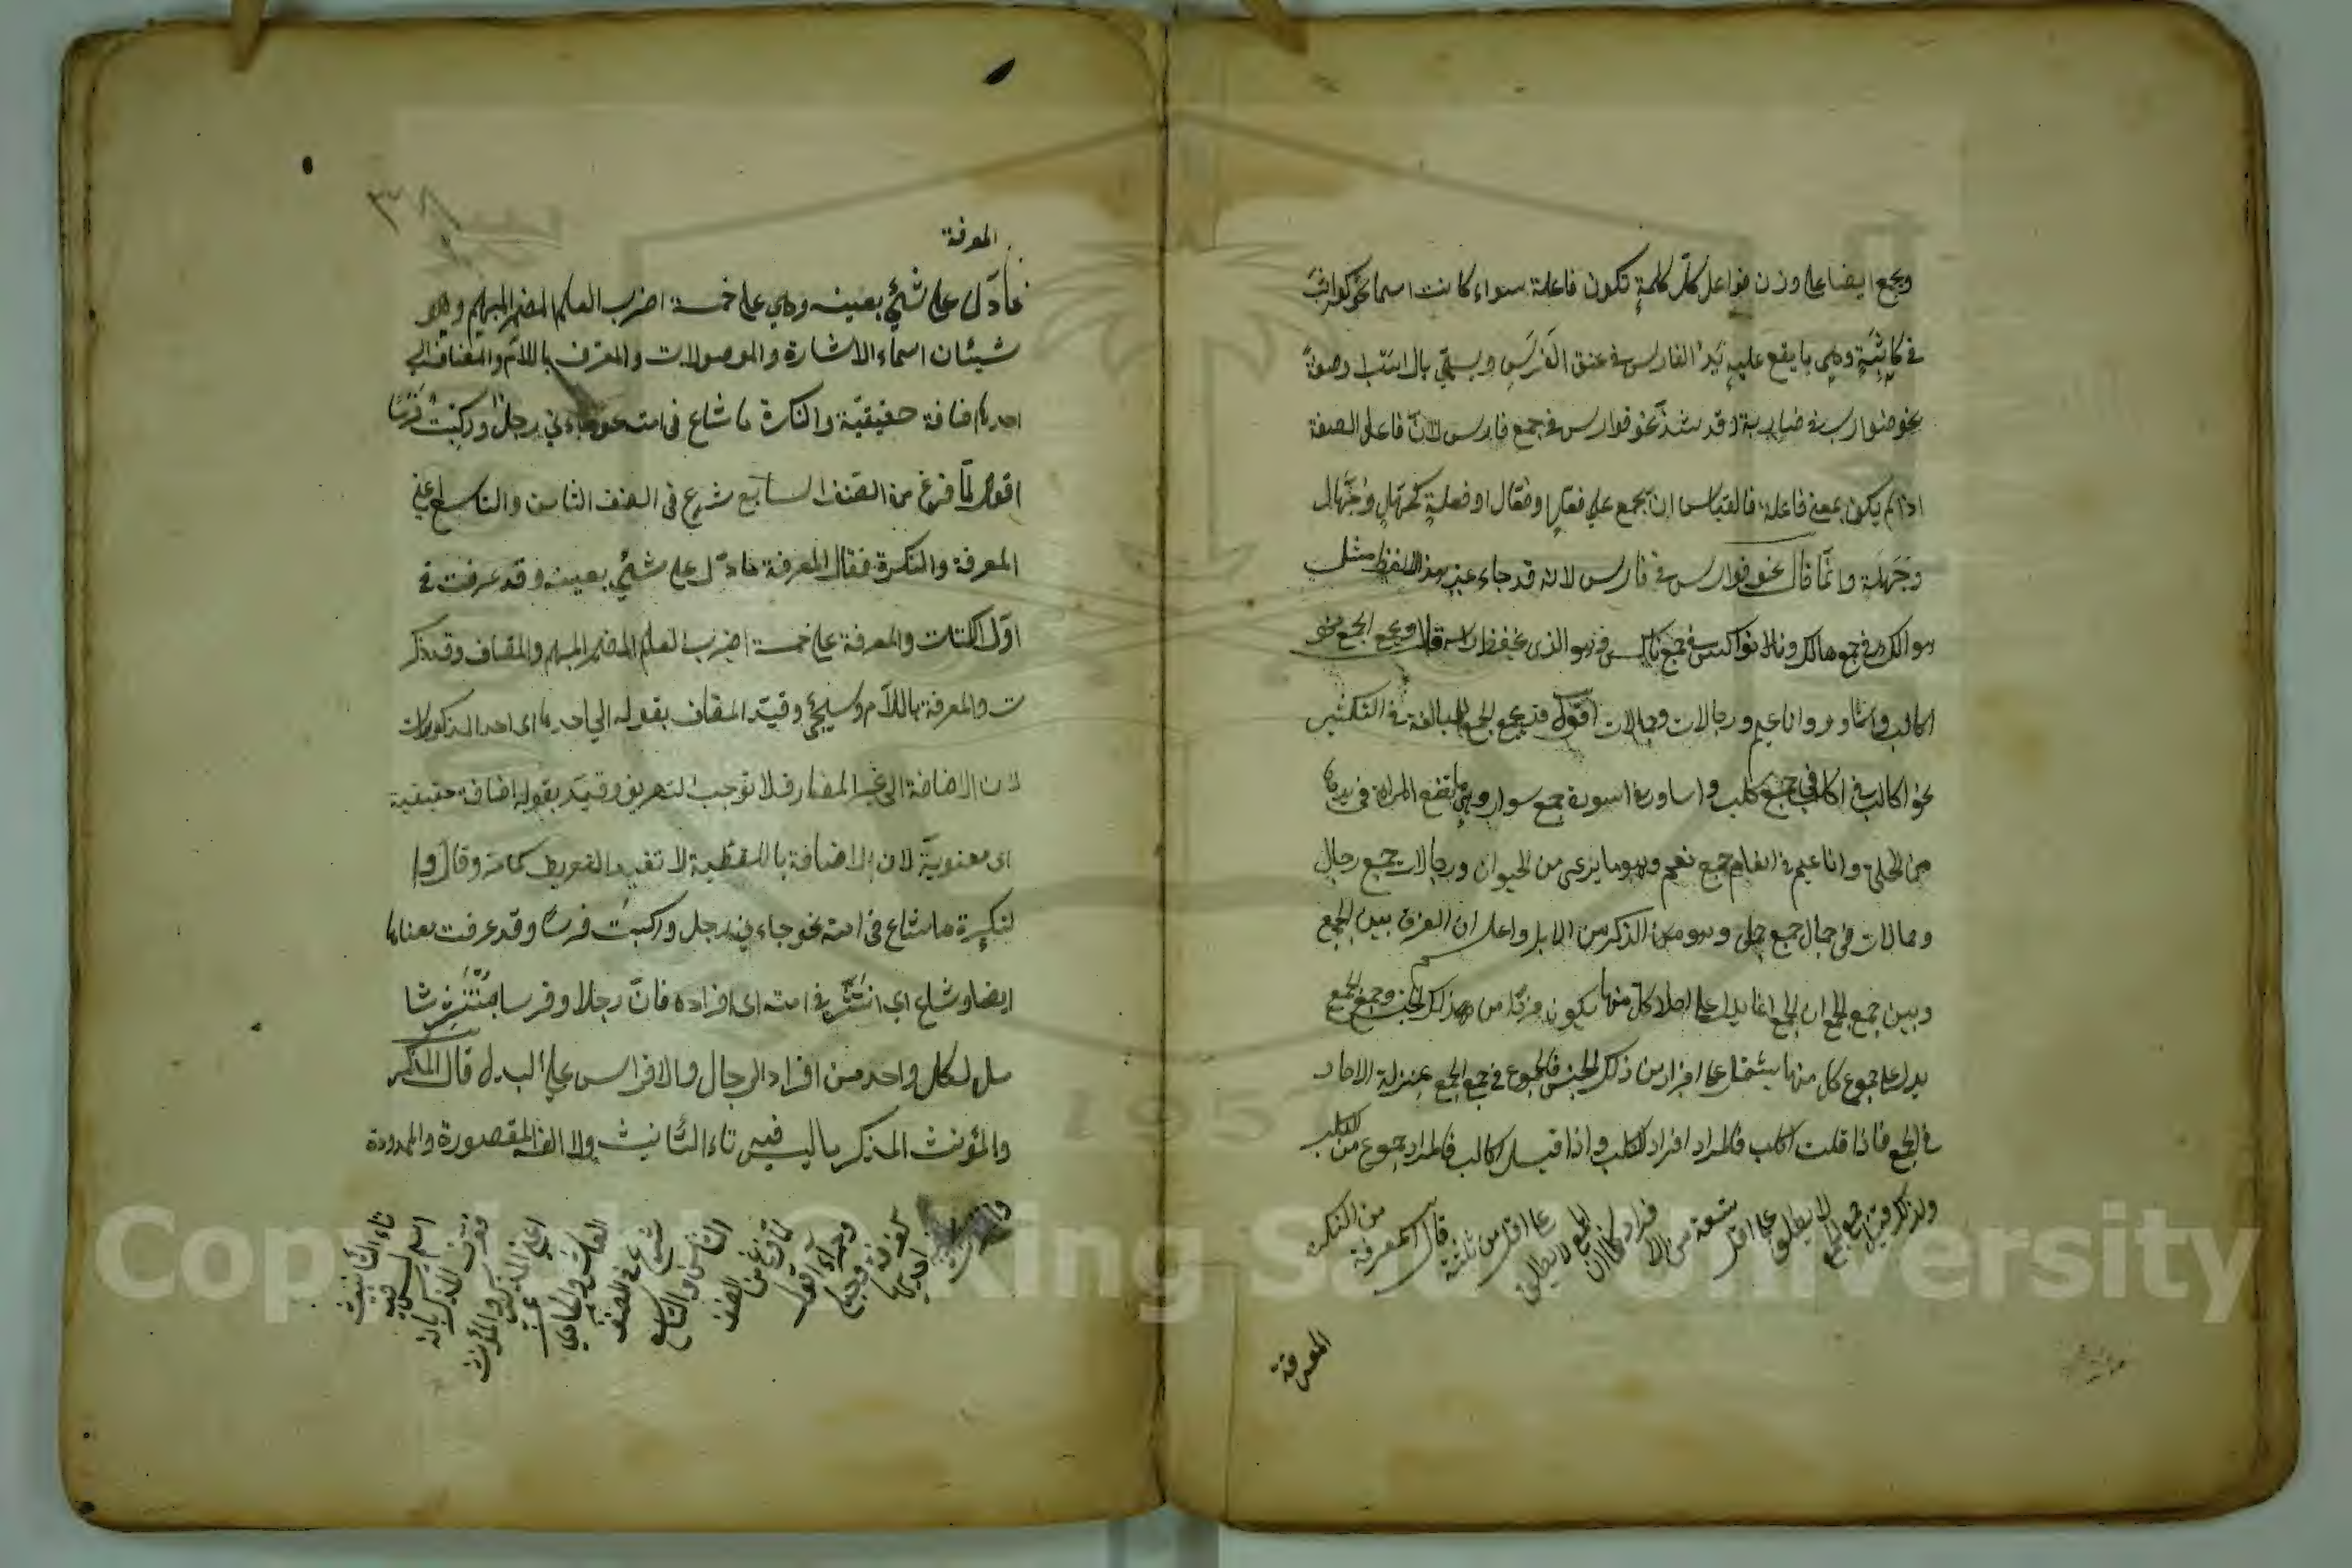 ويجمع ايضا على وزن فواعل كلّ كلمةٍ تكون فاعلة سواء كانت اسما نحو كواثب
في كاثبة وهي ما يقع عليه يد الفارس في عنق الفرس وصفة
نحو ضوارب في ضاربة وقد شذّ نحو فوارس في جمع فارس لانّ فاعل الصفة
اذا لم يكن بمعنى فاعلة فالقياس ان يجمع على فعّل وفعّال او فعلة كجهّل وجهّال
وجهلة وانّما قال نحو فوارس في فارس لانه قد جاء غير هذا اللفظ مثل
هوالك في جمع هالك ونواكس في جمع ناكس وهو الذي يخفض راسه قال ويجمع الجمع نحو
اكالب واساور واناعيم ورجالات وجمالات اقول قد يجمع الجمع للمبالغة في التكثير
نحو اكالب في اكلب جمع كلب واساور في اسورة جمع سوار وهي ما تضع المراة في يدها
من الحلي واناعيم في انعام جمع نعم وهو ما يرعى من الحيوان ورجالات جمع رجال
وجمالات في جمال جمع جمل وهو من الذكر من الابل واعلم ان الفرق بين الجمع
وبين جمع الجمع ان الجمع انما يدل على احاد كل منها يكون فردًا من ذلك الجنس وجمع الجمع
يدل على جموع كل منها يشتمل على افراد من ذلك الجنس فالجموع في جمع الجمع بمنزلة الاحاد
في الجمع فاذا قلت اكلب فالمراد افراد الكلب واذا قيل اكالب فالمراد جموع من الكلب
ولذلك قيل جمع الجمع لا يطلق على اقل من تسعة من الافراد كما ان الجمع لا يطلق على اقل من ثلثة قال المعرفة من النكرة
المعرفة
المعرفة
ما دلّ على شئ بعينه وهي على خمسة اضرب العلم المضمر المبهم وهو
شيئان اسماء الاشارة والموصولات والمعرف باللام والمضاف الى
احدها اضافة حقيقيّة والنكرة ما شاع في امته نحو جاءني رجل وركبت فرسًا
اقول لمّا فرغ من الصنف السابع شرع في الصنف الثامن والتاسع اعني
المعرفة والنكرة فقال المعرفة ما دلّ على شئ بعينه وقد عرفت في
اوّل الكتاب والمعرفة على خمسة اضرب العلم المضمر المبهم والمضاف وقد ذكر
ت والمعرفة باللام وسيجئ وقيّد المضاف بقوله الى احدها اى احد المذكورات
لان الاضافة الى غير المعارف لا توجب التعريف وقيّد بقوله اضافة حقيقية
اى معنويّة لان الاضافة باللفظية لا تفيد التعريف كما مرّ وقال وا
لنكرة ما شاع في امته نحو جاءني رجل وركبت فرسًا وقد عرفت معناها
ايضا وشاع اى انتشر في امته اى افراده فانّ رجلا وفرسا منتشر شا
مل لكل واحد من افراد الرجال والافراس على البدل قال المذكر
والمؤنث المذكر ما ليس فيه تاء التأنيث ولا الف المقصورة والممدودة
والمؤنث ما فيه احديها كغرفة وحبلى وحمراء اقول لما فرغ من الصنف الثامن والتاسع شرع في الصنف العاشر والحادي عشر اعني المذكر والمؤنث فعرف المذكر بانه اسم ليس فيه تاء التأنيث